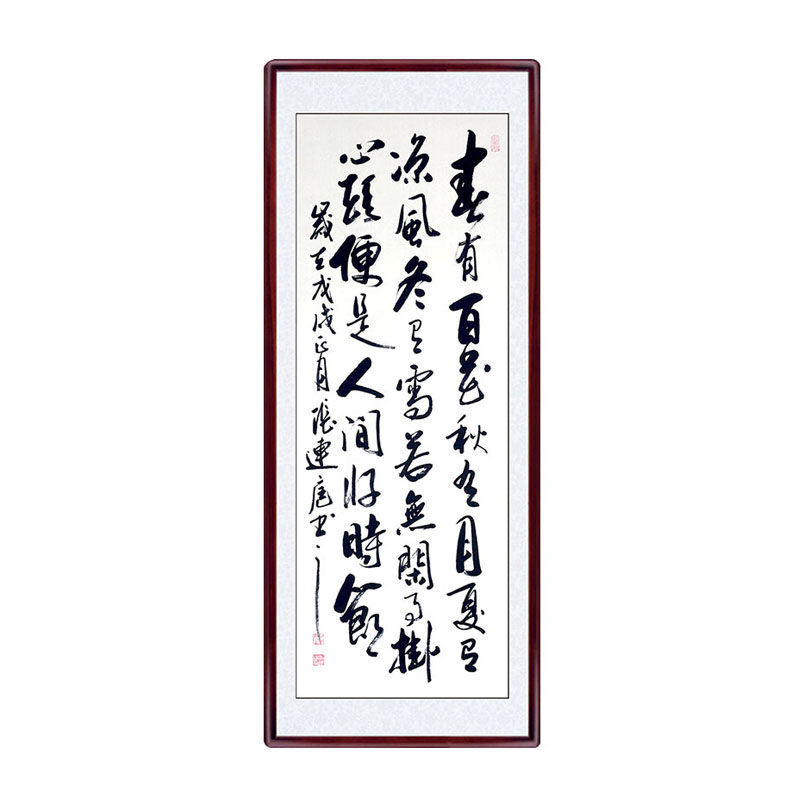 春有百花秋有月夏有
涼風冬有雪若無閑事掛
心頭便是人间好時節
歲在戊戌正月張連庭书